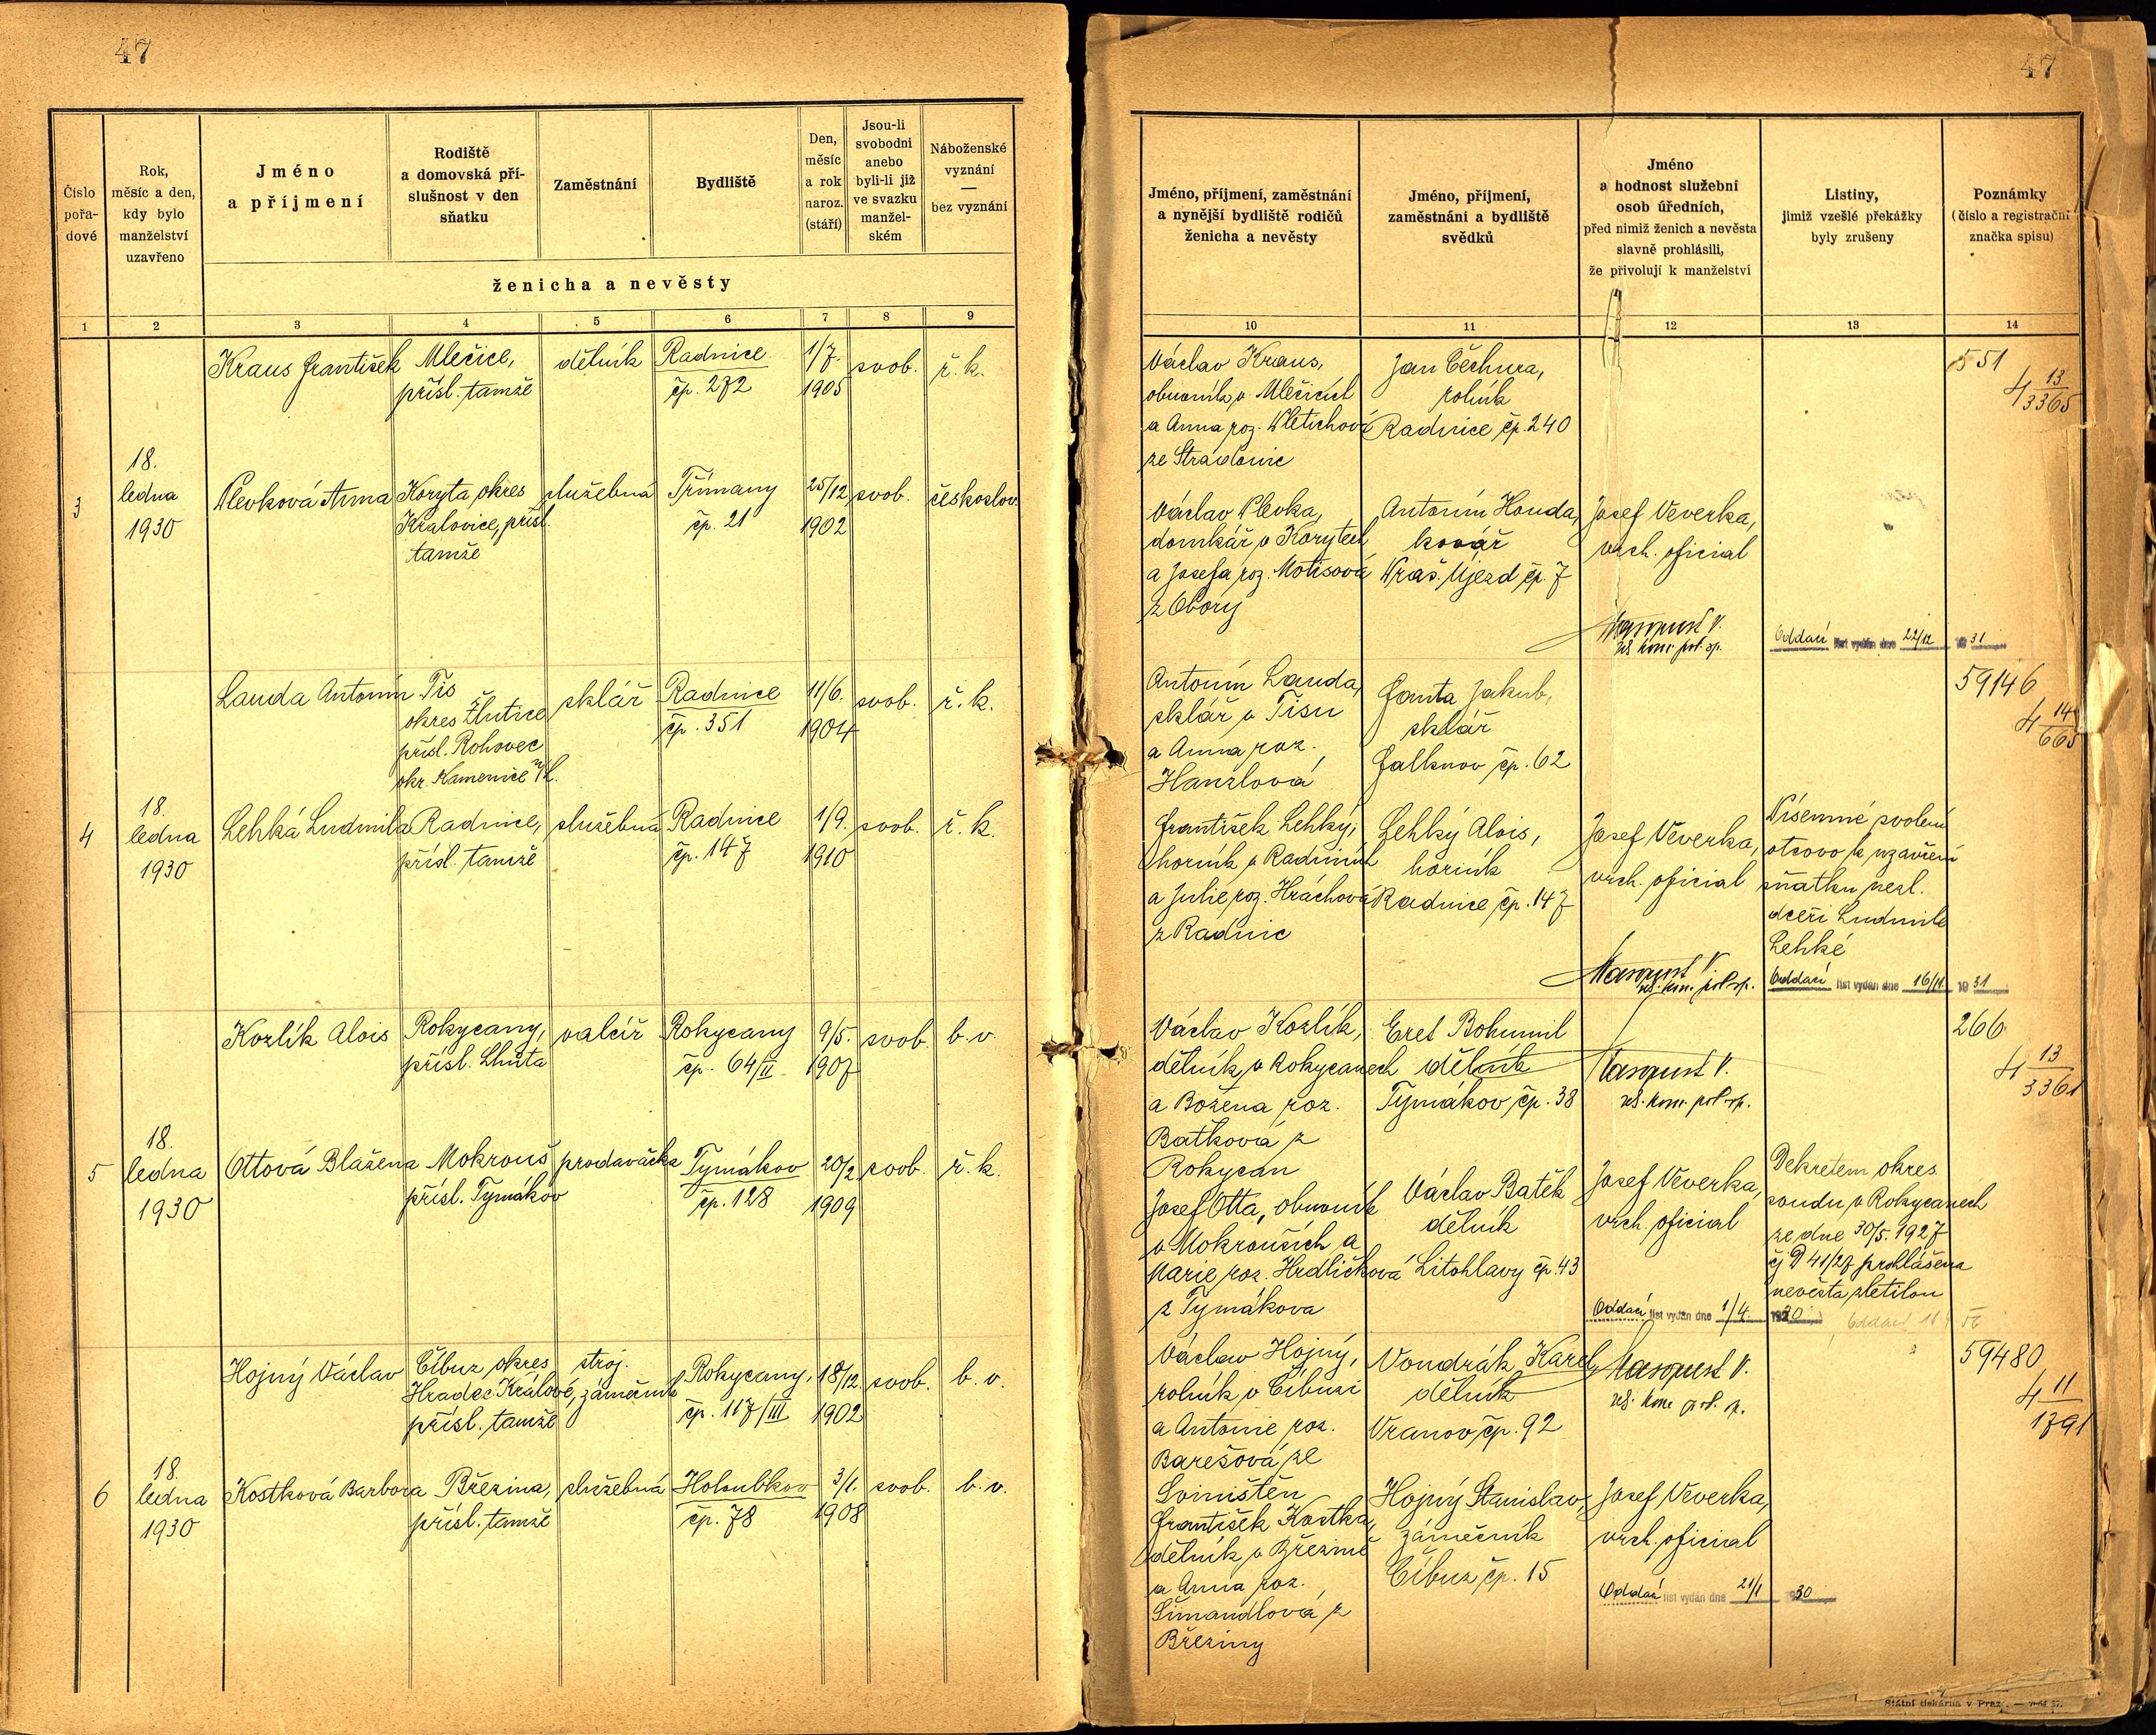 47
Číslo pořa-dové
Rok, měsíc a den, kdy bylo manželství uzavřeno
Jméno a příjmení
Rodiště a domovská pří-slušnost v den sňatku
Zaměstnání
Bydliště
Den, měsíc a rok naroz. (stáří)
Jsou-li svobodni anebo byli-li již ve svazku manžel-ském
Náboženské vyznání — bez vyznání
ženicha a nevěsty
1 2 3 4 5 6 7 8 9
Kraus František Mlečice, dělník Radnice 1/7. svob. ř. k.
přísl. tamže čp. 272 1905
18.
3 ledna Plevková Anna Koryta okres služebná Třímany 25/12 svob. českoslov.
1930 Kralovice, přísl. čp. 21 1902
tamže
Lauda Antonín Tis sklář Radnice 11/6. svob. ř. k.
okres Žlutice čp. 351 1904
přísl. Rohovec
okr. Kamenice n/L.
18.
4 ledna Lehká Ludmila Radnice, služebná Radnice 1/9. svob. ř. k.
1930 přísl. tamže čp. 147 1910
Kozlík Alois Rokycany, valcíř Rokycany 9/5. svob. b. v.
přísl. Lhůta čp. 64/II 1907
18.
5 ledna Ottová Blažena Mokrouš prodavačka Tymákov 20/2 svob. ř. k.
1930 přísl. Tymákov čp. 128 1909
Hojný Václav Číbuz okres stroj. Rokycany, 18/12. svob. b. v.
Hradec Králové, zámečník čp. 117/III 1902
přísl. tamže
18.
6 ledna Kostková Barbora Březina, služebná Holoubkov 3/1. svob. b. v.
1930 přísl. tamže čp. 78 1908
47
Jméno, příjmení, zaměstnání a nynější bydliště rodičů ženicha a nevěsty
Jméno, příjmení, zaměstnání a bydliště svědků
Jméno a hodnost služební osob úředních, před nimiž ženich a nevěsta slavně prohlásili, že přivolují k manželství
Listiny, jimiž vzešlé překážky byly zrušeny
Poznámky (číslo a registrační značka spisu)
10 11 12 13 14
Václav Kraus, Jan Čechura, 551
obuvník v Mlečicích rolník 4 13/3365
a Anna roz. Radnice čp. 240
ze Stradonic
Václav Plevka, Antonín Houda, Josef Veverka,
domkář v Korytech kovář vrch. oficial
a Josefa roz. Motisová Praš. Újezd čp. 7
z Obory
Masopust V.
Oddací list vydán dne 22/12 1931
Antonín Lauda, Janta Jakub, 59146
sklář v Tisu sklář 4 14/665
a Anna roz. Falknov čp. 62
Hanzlová
František Lehký, Lehký Alois, Josef Veverka, Písemné svolení
horník v Radnicích horník vrch. oficial otcovo k uzavření
a Julie roz. Hráchová Radnice čp. 147 sňatku nezl.
z Radnic dceři Ludmile
Lehké
Masopust V.
Oddací list vydán dne 16/11 1931
Václav Kozlík, Eret Bohumil 266
dělník v Rokycanech dělník Masopust V. 4 13/3361
a Božena roz. Tymákov čp. 38
Batková z
Rokycan
Josef Otta, obuvník Václav Batěk Josef Veverka, Dekretem okres.
v Mokrouších a dělník vrch. oficial soudu v Rokycanech
Marie roz. Hrdličková Litohlavy čp. 43 ze dne 30/5. 1927
z Tymákova čj P 41/27 prohlášena
nevěsta zletilou
Oddací list vydán dne 1/4. 1930
Václav Hojný, Vondrák Karel, Masopust V. 59480
rolník v Číbuzi dělník 4 11/1791
a Antonie roz. Vranov čp. 92
Barešová ze
Sviništěn
František Kostka, Hojný Stanislav, Josef Veverka,
dělník v Březině zámečník vrch. oficial
a Anna roz. Číbuz čp. 15
Šimandlová z
Březiny
Oddací list vydán dne 21/1 1930
Státní tiskárna v Praze.